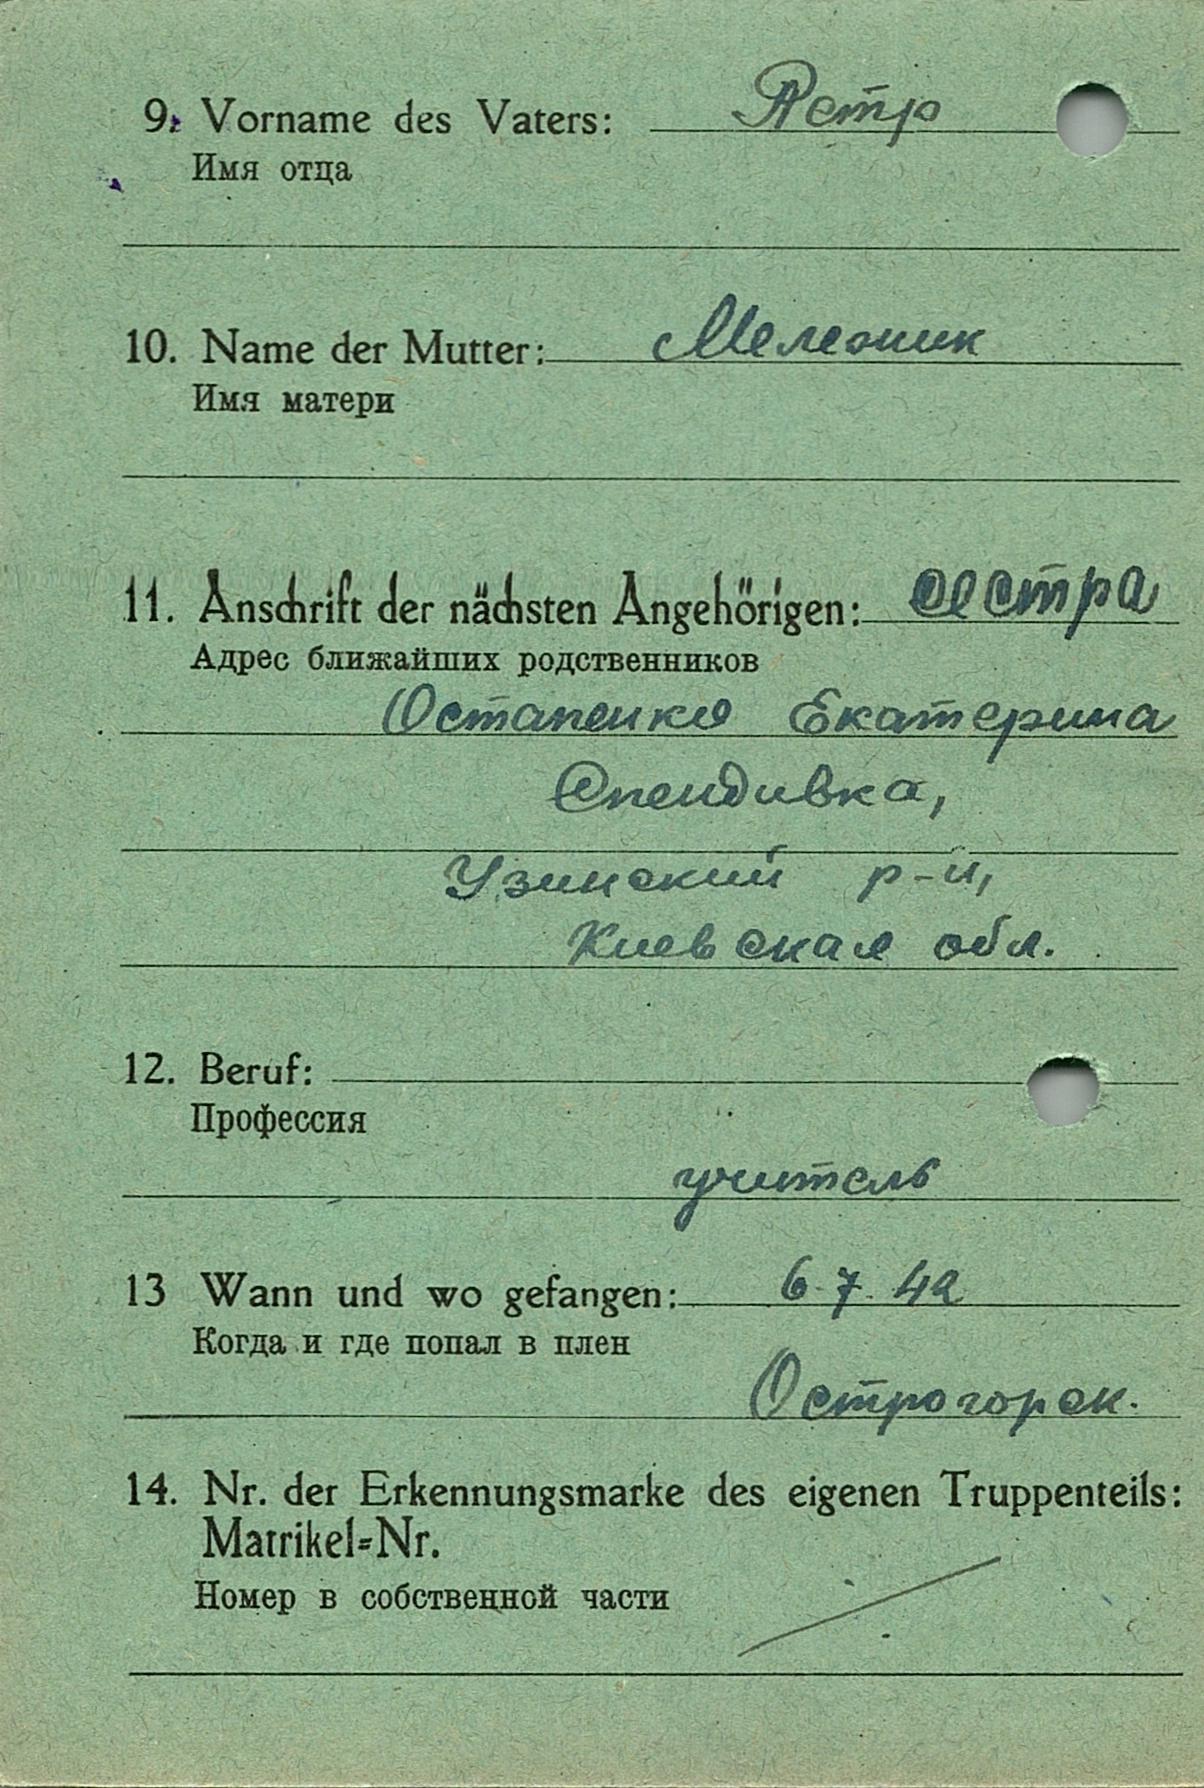 9. Vorname des Vaters: Петр
Имя отца
10. Name der Mutter: Мелешик
Имя матери
11. Anschrift der nächsten Angehörigen: сестра
Адрес ближайших родственников
Остапенко Екатерина
Спендивка,
Узинский р-н,
Киевская обл.
12. Beruf:
Профессия
учитель
13 Wann und wo gefangen: 6.7.42
Когда и где попал в плен
Острогорск.
14. Nr. der Erkennungsmarke des eigenen Truppenteils:
Matrikel=Nr.
Номер в собственной части